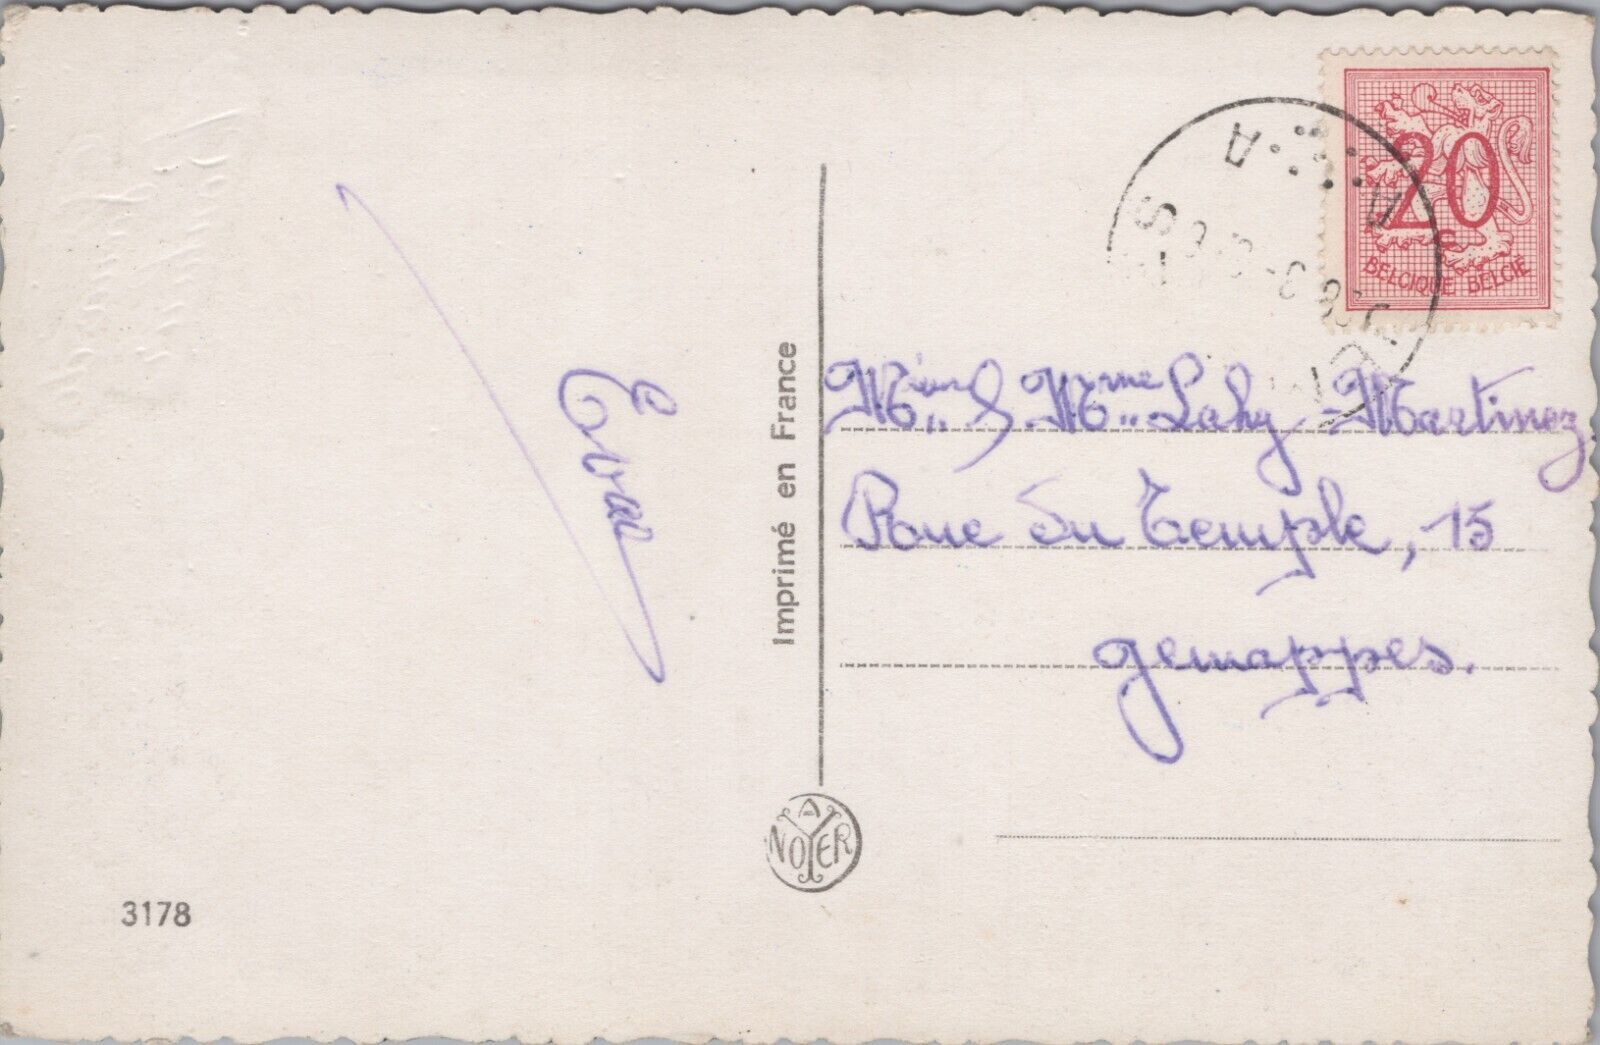 20
BELGIQUE BELGIË
A
S A
Mr & Mme Lahy-Martinez.
Rue du Temple, 15
Gemappes.
Imprimé en France
A NOYER
3178